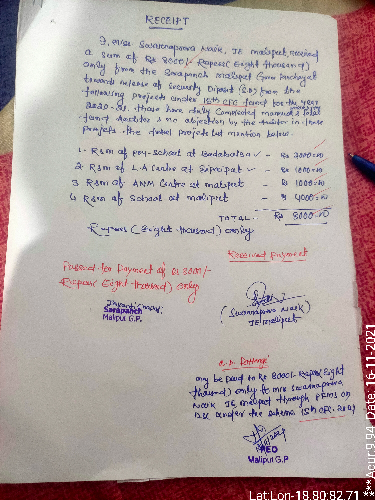 RECEIPT
I, miss Swarnaprava Naik, JE malipet, received
a sum of Rs 8000/- Rupees (Eight thousand)
only from the Sarapanch malipet Gram Panchayat
towards release of Security Diposit (SD) from the
following projects under 15th CFC fund for the year
2020-21. those have duly Completed
no objection by the
projects. the
1. R&m of at Badabatsa - Rs 2000=00
2. R&m of L.A Centre at - Rs 1000=00
3. R&m of ANM Centre at malipet - Rs 1000=00
4. R&m of School at malipet - Rs 4000=00
TOTAL:- Rs 8000=00
Rupees (Eight thousand) only
Received payment
Passed for Payment of Rs 8000/-
Rupees (Eight thousand) only
Sarapanch
Malipur G.P.
(Swarnaprava Naik)
JE malipet
may be paid to Rs 8000/- Rupees Eight
thousand) only to miss Swarnaprava
Naik JE malipet through PFMS on
DSC under the scheme 15th CFC
PEO
Malipur G.P
Lat:Lon-18.80:82.71
***Acur:9.94 Date:16-11-2021